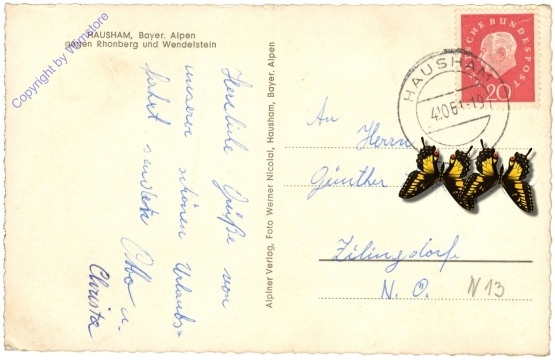 HAUSHAM, Bayer. Alpen
gegen Rhonberg und Wendelstein
Copyright by wmstore
Herzliche Grüße von
unserer schönen Urlaubs-
fahrt senden Otto u.
Christa
Alpiner Verlag, Foto Werner Nicolai, Hausham, Bayer. Alpen
DEUTSCHE BUNDESPOST
20
HAUSHAM
An Herrn
Günther
Zilingdorf
N. O. N 13